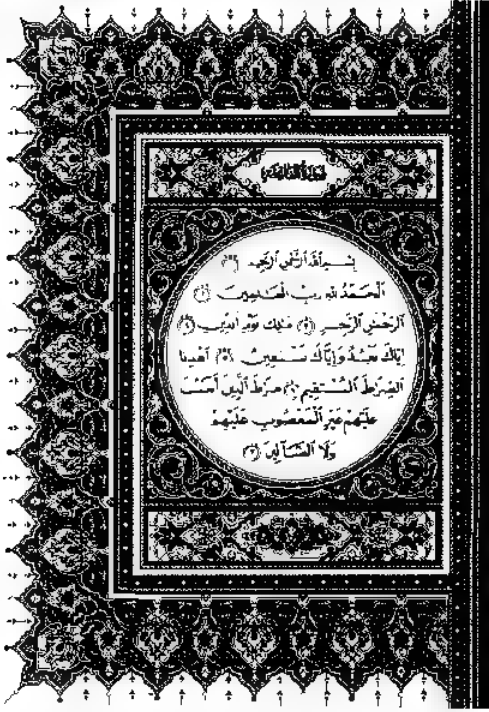 سورة الفاتحة
بِسْمِ ٱللَّهِ ٱلرَّحْمَٰنِ ٱلرَّحِيمِ ﴿١﴾
ٱلْحَمْدُ لِلَّهِ رَبِّ ٱلْعَٰلَمِينَ ﴿٢﴾
ٱلرَّحْمَٰنِ ٱلرَّحِيمِ ﴿٣﴾ مَٰلِكِ يَوْمِ ٱلدِّينِ ﴿٤﴾
إِيَّاكَ نَعْبُدُ وَإِيَّاكَ نَسْتَعِينُ ﴿٥﴾ ٱهْدِنَا
ٱلصِّرَٰطَ ٱلْمُسْتَقِيمَ ﴿٦﴾ صِرَٰطَ ٱلَّذِينَ أَنْعَمْتَ
عَلَيْهِمْ غَيْرِ ٱلْمَغْضُوبِ عَلَيْهِمْ
وَلَا ٱلضَّآلِّينَ ﴿٧﴾